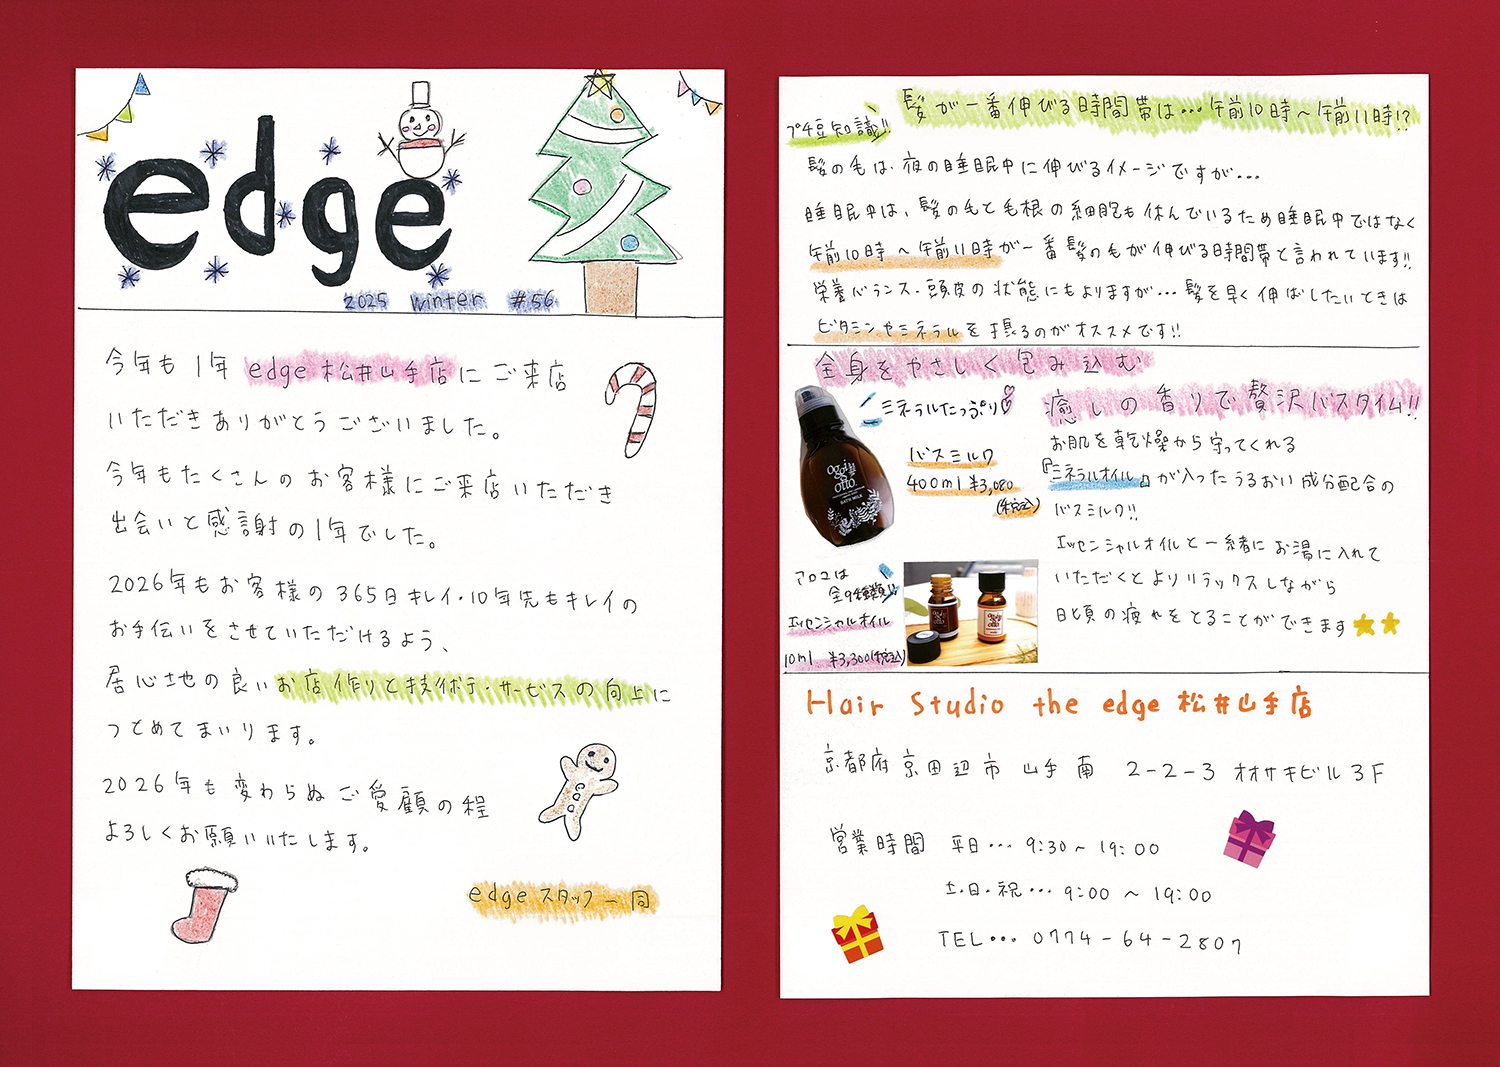 edge
2025 winter #56
今年も1年 edge 松井山手店にご来店
いただきありがとうございました。
今年もたくさんのお客様にご来店いただき
出会いと感謝の1年でした。
2026年もお客様の365日キレイ・10年先もキレイの
お手伝いをさせていただけるよう、
居心地の良いお店作りと技術・サービスの向上に
つとめてまいります。
2026年も変わらぬご愛顧の程
よろしくお願いいたします。
edge スタッフ一同
プチ豆知識!!
髪が一番伸びる時間帯は…午前10時〜午前11時!?
髪の毛は、夜の睡眠中に伸びるイメージですが…
睡眠中は、髪の毛と毛根の細胞も休んでいるため睡眠中ではなく
午前10時〜午前11時が一番髪の毛が伸びる時間帯と言われています!!
栄養バランス・頭皮の状態にもよりますが…髪を早く伸ばしたいときは
ビタミンやミネラルを摂るのがオススメです!!
全身をやさしく包み込む
癒しの香りで贅沢バスタイム!!
ミネラルたっぷり♡
バスミルク
400ml ¥3,080
(税込)
oggi
otto.
BATH MILK
お肌を乾燥から守ってくれる
『ミネラルオイル』が入ったうるおい成分配合の
バスミルク!!
エッセンシャルオイルと一緒にお湯に入れて
いただくとよりリラックスしながら
日頃の疲れをとることができます
アロマは
全9種類!!
エッセンシャルオイル
10ml ¥3,300(税込)
Hair Studio the edge 松井山手店
京都府京田辺市山手南 2-2-3 オオサキビル3F
営業時間 平日… 9:30〜19:00
土・日・祝… 9:00〜19:00
TEL… 0774-64-2807